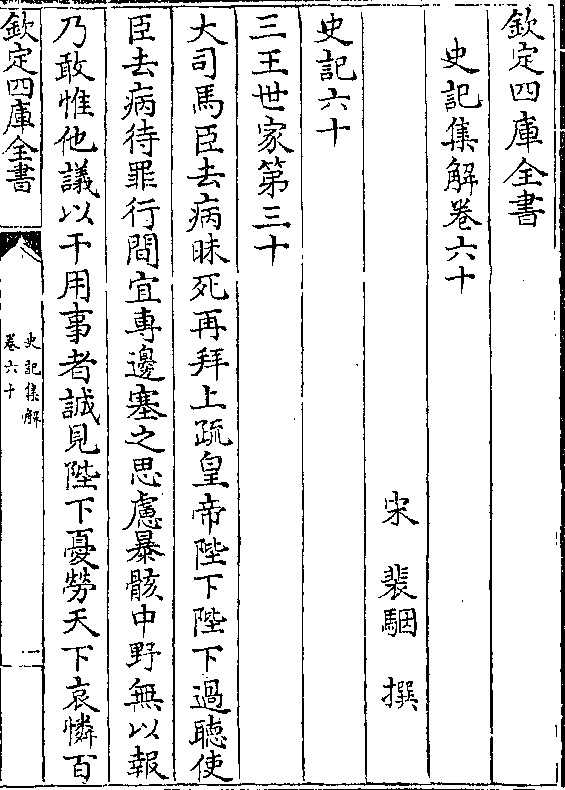 欽定四庫全書
史記集解卷六十
宋 裴駰 撰
史記六十
三王世家第三十
大司馬臣去病昧死再拜上疏皇帝陛下陛下過聽使
臣去病待罪行間宜專邊塞之思慮暴骸中野無以報
乃敢惟他議以干用事者誠見陛下憂勞天下哀憐百
欽定四庫全書
史記集解
卷六十